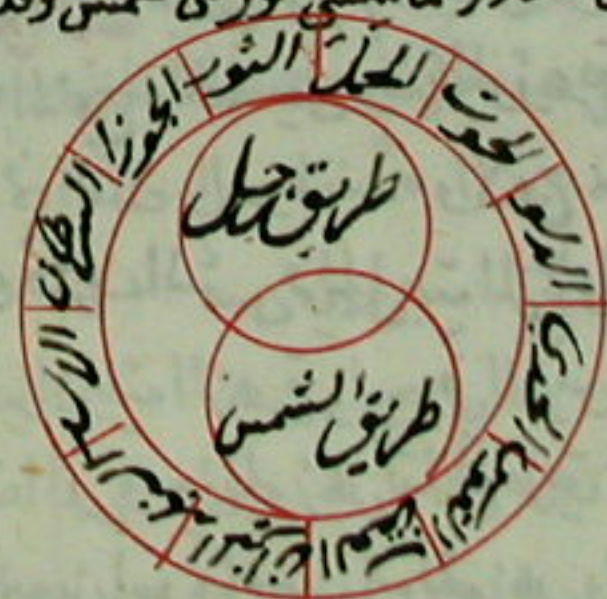 الحمل
الثور
الجوزا
السرطان
الاسد
السنبله
الميزان
العقرب
القوس
الجدي
الدلو
الحوت
طريق زحل
طريق الشمس